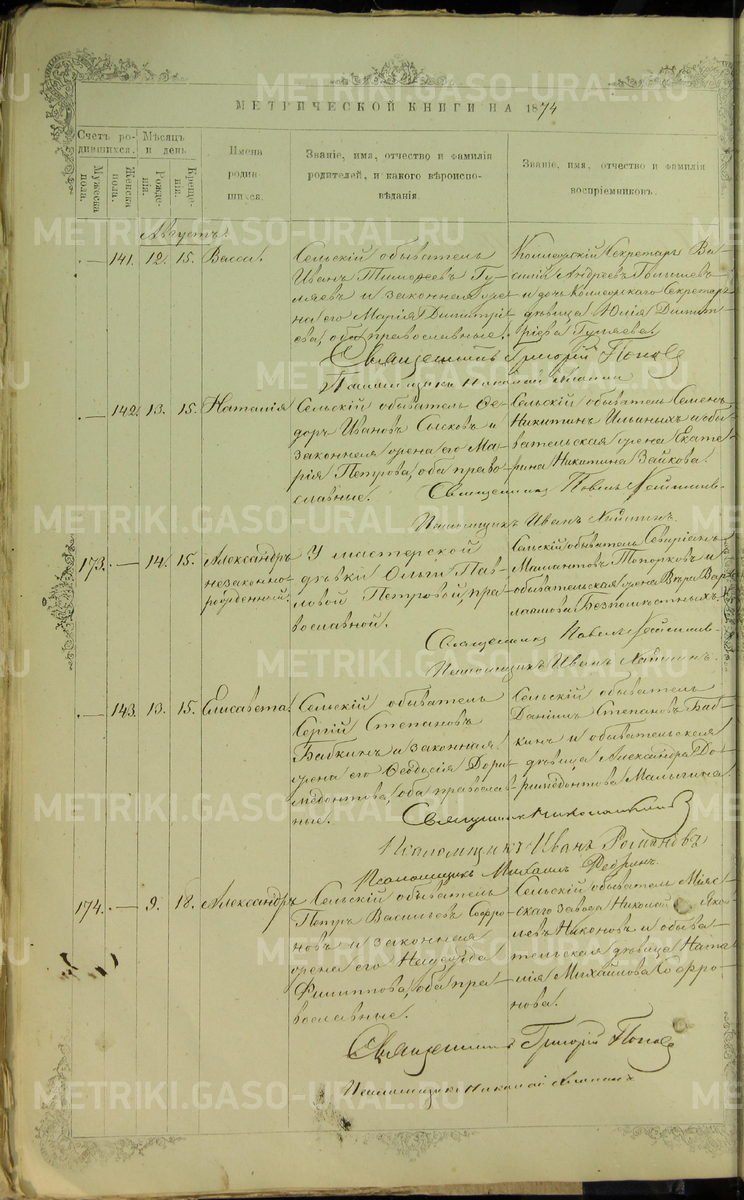 METRIKI.GASO-URAL.RU
МЕТРИЧЕСКОЙ КНИГИ НА 1874
Счетъ родившихся.
Мужеска пола.
Женска пола.
Мѣсяцъ и день
Рожденія.
Крещенія.
Имена родившихся.
Званіе, имя, отчество и фамилія родителей, и какого вѣроисповѣданія.
Званіе, имя, отчество и фамилія воспріемниковъ.
Августъ.
141. 12. 15. Васса.
Сельскій обыватель
Иванъ Тимофеевъ
и законная жена его Марія Димитріева, оба православные.
Коллежскій Секретарь Василій Андреевъ
и дочь Коллежскаго Секретаря дѣвица Юлія Димитріева
Священникъ Григорій Поповъ
Псаломщикъ Николай
142. 13. 15. Наталія
Сельскій обыватель Ѳедоръ Ивановъ Сысковъ и
законная жена его Марія Петрова, оба православные.
Сельскій обыватель Семенъ
Никитинъ Ильиныхъ и обывательская жена Екатерина Никитина Зайкова.
Священникъ Павелъ
Псаломщикъ Иванъ
173. — 14. 15. Александръ незаконнорожденный.
У мастерской
дѣвки Ольги Павловой Петровой, православной.
Сельскій обыватель
Топорковъ и
обывательская жена Вѣра Варлаамова Безпомѣстныхъ.
Священникъ Павелъ
Псаломщикъ Иванъ
143. 13. 15. Елисавета.
Сельскій обыватель
Сергій Степановъ
Бабкинъ и законная
жена его Ѳеодосія Доримедонтова, оба православные.
Сельскій обыватель
Даніилъ Степановъ Бабкинъ и обывательская
дѣвица Александра Доримедонтова Малыгина.
Священникъ
Псаломщикъ Иванъ Романовъ
Псаломщикъ Михаилъ
174. — 9. 18. Александръ
Сельскій обыватель
Петръ Васильевъ Софроновъ и законная
жена его Надежда
Филиппова, оба православные.
Сельскій обыватель Міясскаго завода Николай Яковлевъ Никоновъ и обывательская дѣвица Наталія Михайлова Софронова.
Священникъ Григорій Поповъ
Псаломщикъ Николай